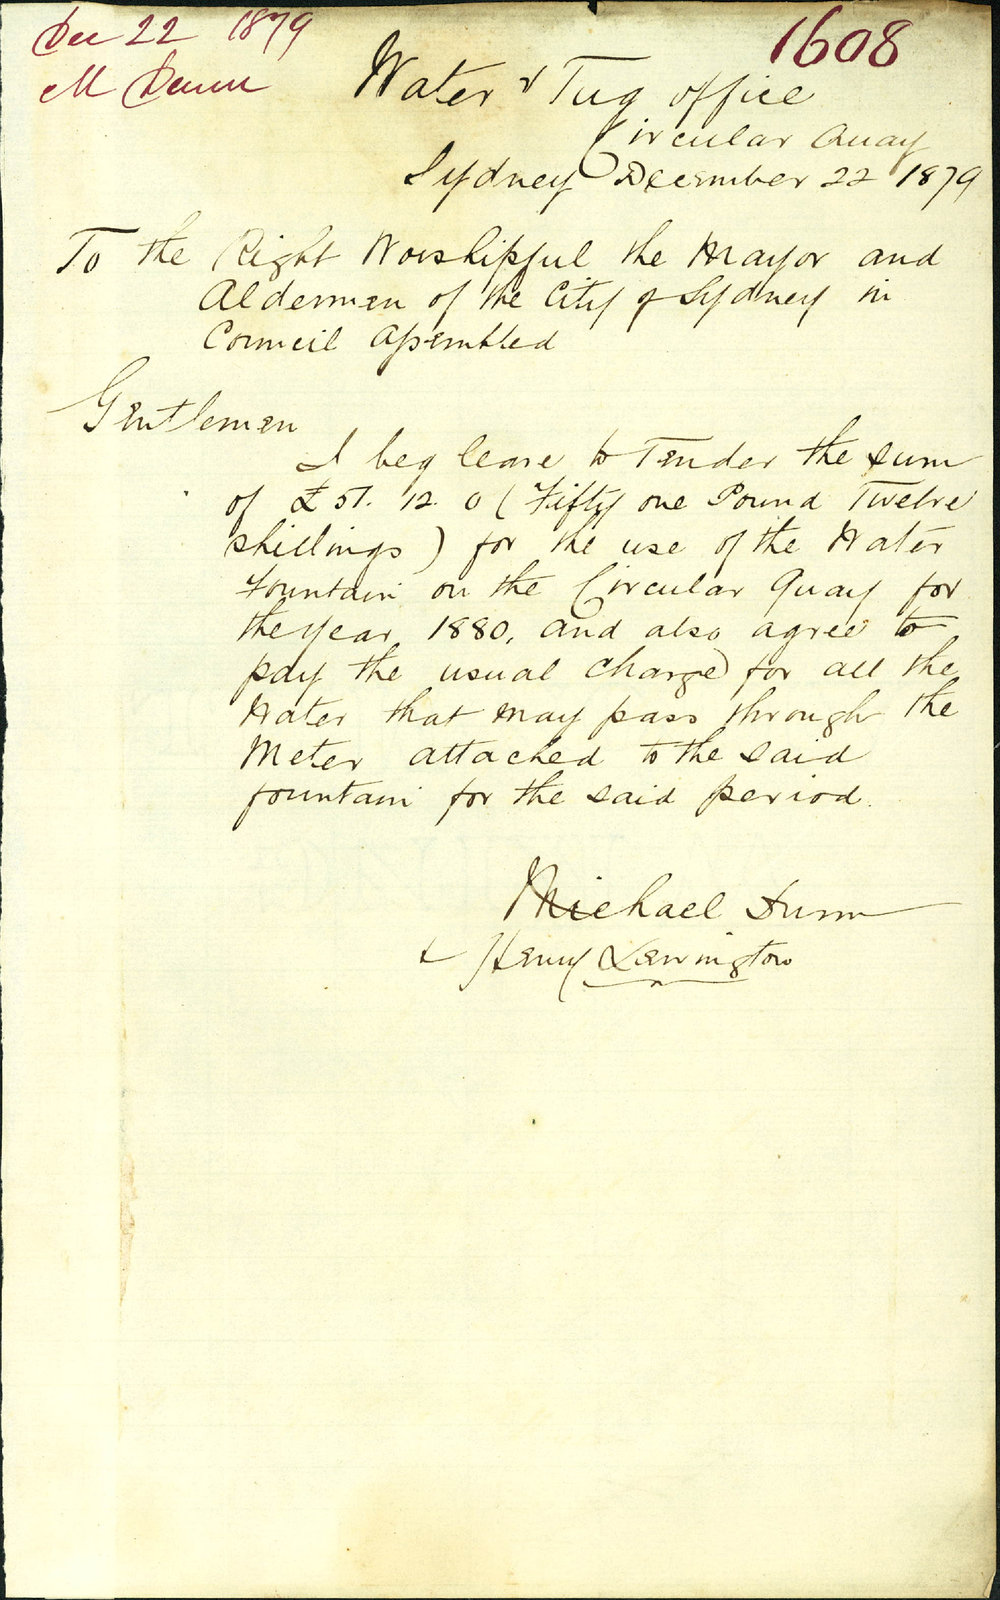 Dec 22 1879
M Dunn
1608
Water & Tug office
Circular Quay
Sydney December 22 1879
To the Right Worshipful the Mayor and
Aldermen of the City of Sydney in
Council Assembled
Gentlemen
I beg leave to Tender the sum
of £51. 12. 0 (Fifty one Pound Twelve
shillings) for the use of the Water
Fountain on the Circular Quay for
the year 1880, and also agree to
pay the usual charge for all the
Water that may pass through the
Meter attached to the said
fountain for the said period.
Michael Dunn
& Henry